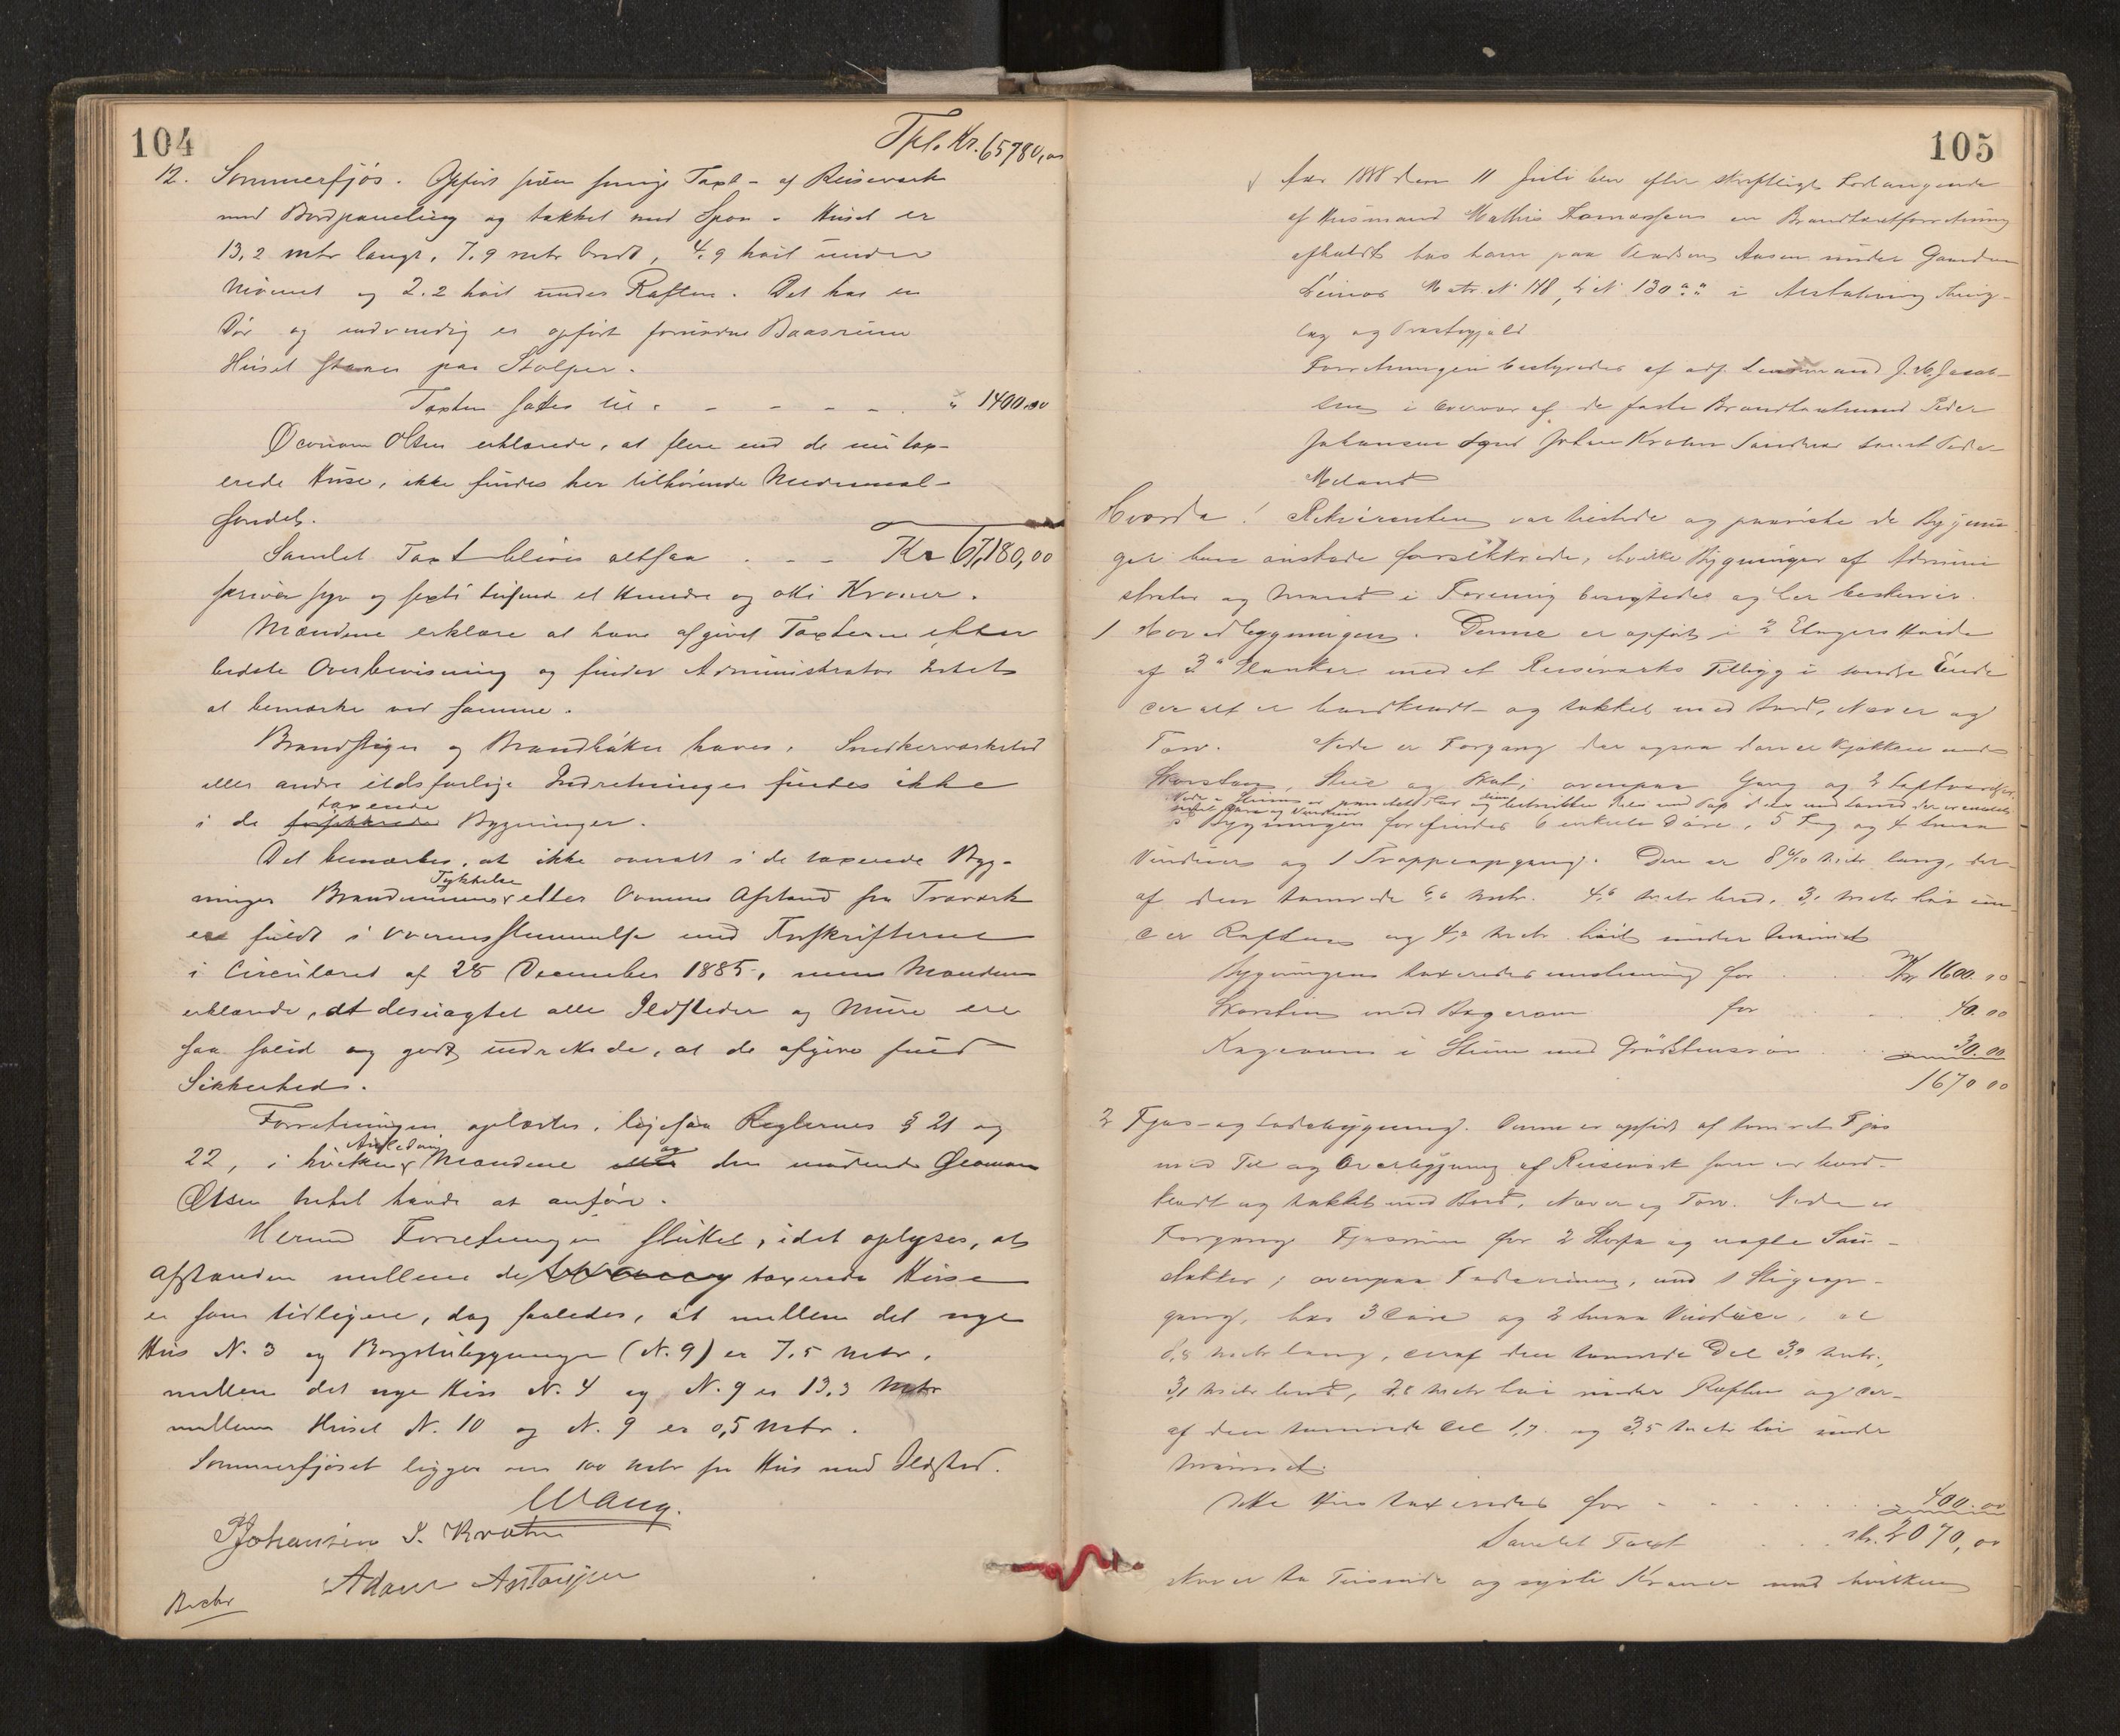 104
Tpl. Kr. 65780,00
12. Sommerfjøs. Opført siden forrige Taxt - af Reisverk
med Bordpaneling og tækket med Spon - Huset er
13,2 metr langt, 7,9 metr bredt, 4,9 høit under
Mønnet og 2.2 høit under Raften. Det har en
Dør og indvendig er opført fornødne Baasrum
Huset staaer paa Stolper.
Taxten sattes til - - - - " 1400.00
Øconom Olsen erklærede, at flere end de nu tax-
erede Huse, ikke findes her tilhørende Medicinal-
fondet.
Samlet Taxt bliver altsaa - - Kr 67,180,00
skriver syv og sexti tusind et Hundre og otti Kroner.
Mændene erklære at have afgivet Taxterne efter
bedste Overbevisning og finder Administrator Intet
at bemærke ved samme.
Brandstiger og Brandhaker haves. Snedkerværksted
eller andre ildsfarlige Indretninger findes ikke
taxerede
i de Bygninger.
Det bemærkes, at ikke overalt i de taxerede Byg-
Tykkelse
ninger Brandmurens eller Ovnenes Afstand fra Træværk
er fuldt i Overensstemmelse med Forskrifterne
i Circulæret af 28 December 1885, men Mændene
erklærede, at desuagtet alle Ildsteder og Mure ere
saa solid og godt indrettede, at de afgive fuld
Sikkerhed.
Forretningen oplæstes, ligesaa Reglernes § 21 og
Anledning og
22, i hvilken Mændene den mødende Øconom
Olsen Intet havde at anføre.
Hermed Forretningen sluttet, idet oplyses, at
Afstanden mellem de taxerede Huse
er som tidligere, dog saaledes, at mellem det nye
Hus N. 3 og Borgstubygningen (N. 9) er 7,5 metr,
mellem det nye Hus N. 4 og N. 9 er 13,3 Metr
mellem Huset N. 10 og N. 9 er 0,5 Metr.
Sommerfjøset ligger over 100 Metr fra Hus med Ildsted.
Wang.
PJohansen J. Krohn
Adam Antonsen
105
Aar 1888 den 11 Juli blev efter skriftligt Forlangende
af Husmand Mathis Tomassen en Brandtaxtforretning
afholdt hos ham paa Pladsen Aasen under Gaarden
Matr. N 148, L N 130 i Alstahaug Thing-
lag og Præstegjæld
Forretningen bestyredes af adj. Lensmand J. M. Jacob-
sen i Overvær af de faste Brandtaxtmænd Peder
Johansen Johan Krohn Sandnes samt Peder
Meland
Hvorda! Rekvirenten var tilstede og paaviste de Bygnin-
ger han ønskede forsikkrede, hvilke Bygninger af Admini
strator og Mænd i Forening besigtedes og her beskrives.
1 Hovedbygningen. Denne er opført i 2 Etagers Høide
af 3" Planker med et Reisværks Tilbyg i søndre Ende
der alt er bordklædt og tækket med Bord, Næver og
Torv. Nede er Forgang der ogsaa danner Kjøkken med
Skorsten, Stue og ; ovenpaa Gang og 2 Loftværelser
I Bygningen forefindes 6 enkelte Døre, 5 Fag og 4 smaa
Vinduer og 1 Trappeopgang. Den er 8 6/10 Metr lang, der-
af den tømrede 6,6 metr. 4,6 metr bred, 3, metr høi un-
der Raften og 4,2 metr høit under Mønnet
Bygningen taxeredes uden for Kr 1600.00
Skorsten med Bagerovn for 40.00
Kogeovn i Stuen med 30.00
1670 00
2 Fjøs- og Ladebygning. Denne er opført af tømret Fjøs
med Til og Overbygning af Reisværk som er bord-
klædt og tækket med Bord, Næver og Torv. Nede er
Forgang Fjøsrum for 2 Storfæ og nogle Smaa-
; ovenpaa Laderum, med 1 Stigeop-
gang, har 3 Døre og 2 smaa Vinduer, er
8,8 metr lang, deraf den tømrede Del 3,9 metr,
3,1 metr bred, 2,8 metr høi under Raften og der-
af den tømrede Del 1,7 og 3,5 metr høi under
Mønnet.
Dette Hus taxeredes for - - 400.00
Samlet Taxt Kr. 2070,00
skriver to Tusinde og sytti Kroner med hvilken